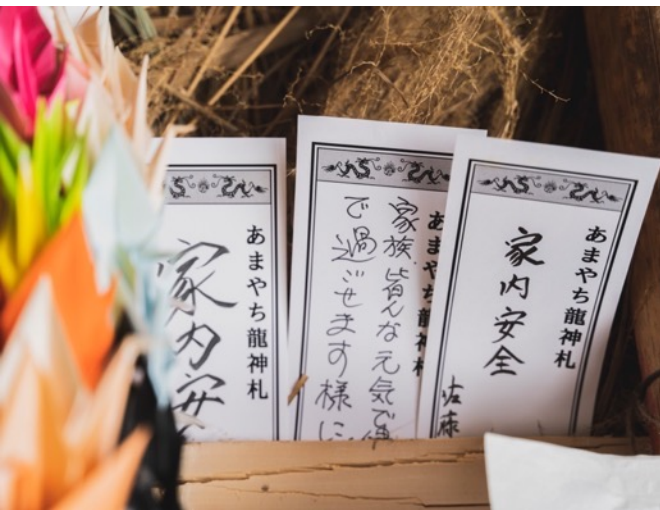 あまやち龍神札
家内安全
佐藤
あまやち龍神札
家族皆んな元気で
で過ごせます様に
あまやち龍神札
家内安